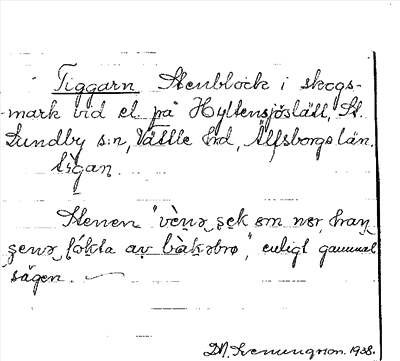 Tiggarn Stenblock i skogs-
-mark vid el. på Hyltensjöslätt, St.
Lundby s:n, Vättle hd, Älfsborgs län.
tìgan
Stenen "vènə ʂek əm nər han
ʂenə lòkta av bàkəbrø", enligt gammal
sägen.
D.N. Svenungson. 1938.